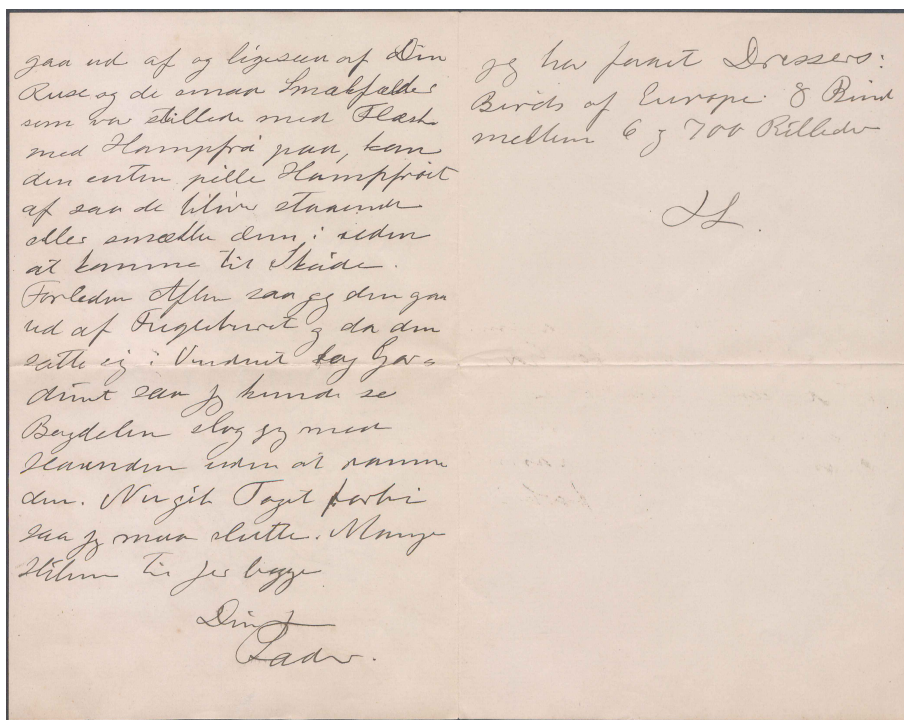 gaa ud af og ligesaa af Din
Ruse og de smaa Smækfælder
som var stillede med Flæsk
med Hampfrø paa, kan
den enten pille Hampfrøet
af saa de bliver staaende
eller smække dem i uden
at komme til Skade.
Forleden Aften saa jeg den gaa
ud af Fugleburet og da den
satte sig i Vinduet bag Gar=
dinet saa jeg kunde se
Bagdelen slog jeg med
Haanden uden at ramme
den. Nu gik Toget forbi
saa jeg maa slutte. Mange
Hilsner til jer begge
Din
Fader.
jeg har faaet Dressers:
Birds of Europe. 8 Bind
mellem 6 og 700 Billeder